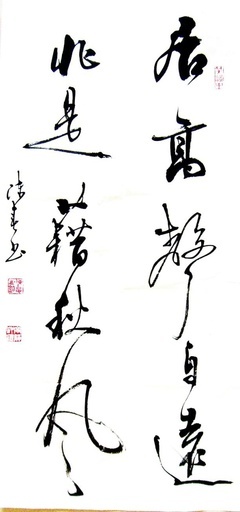 居高聲自遠
非是藉秋風